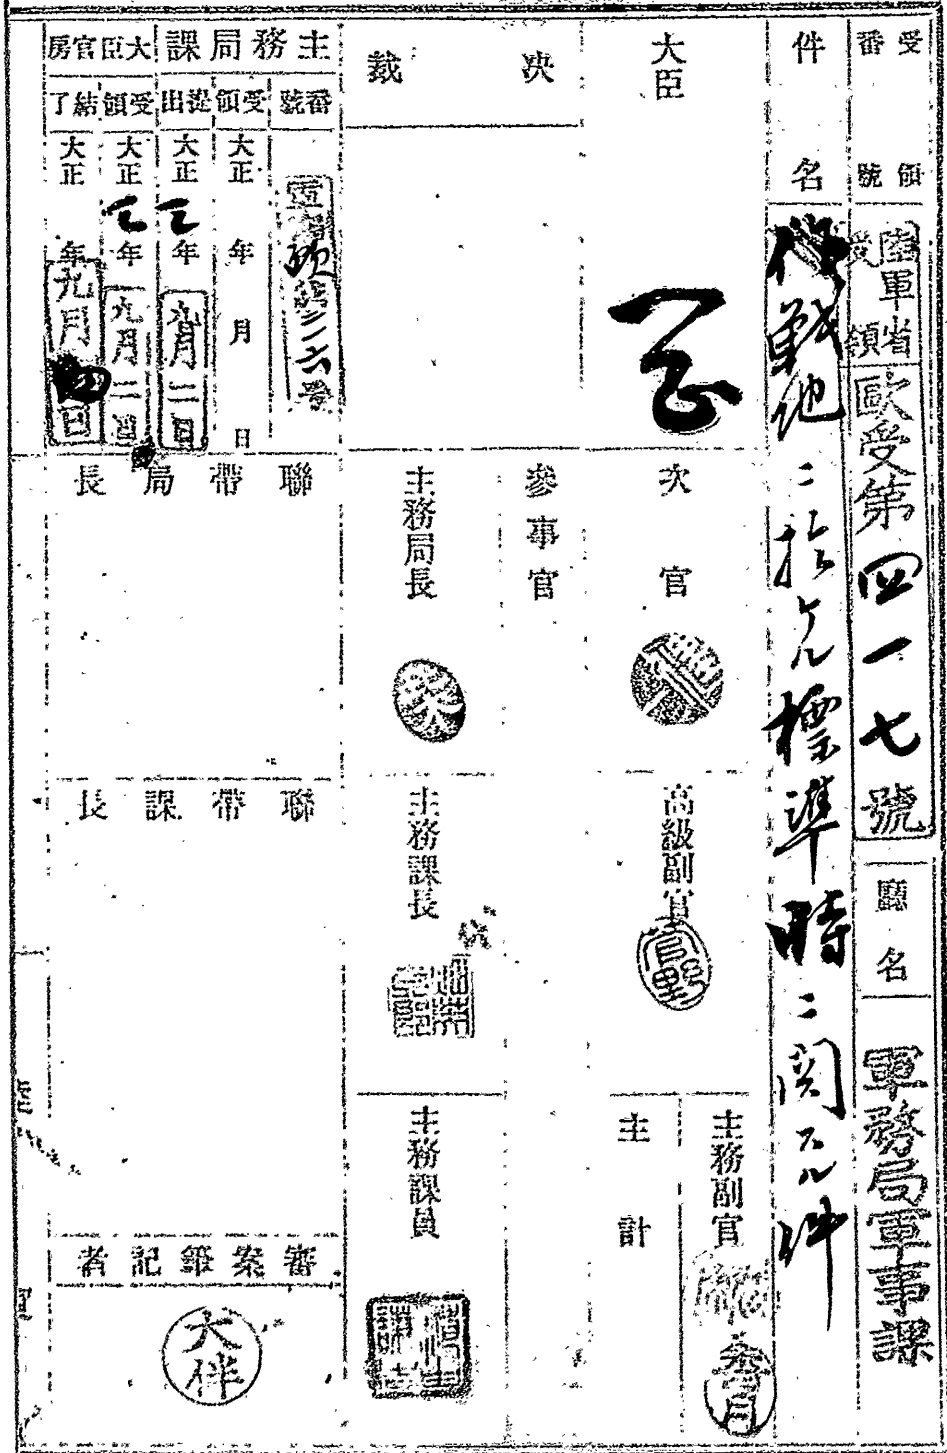 受領番號
陸軍省受領
歐受第四一七號
廳名
軍務局軍事課
件名
作戰地ニ於ケル標準時ニ関スル件
大臣
次官
高級副官
菅野
主務副官
主計
決裁
參事官
主務局長
主務課長
主務課員
主務局課
番號
第二六號
受領
大正 年 月 日
提出
大正三年九月二日
大臣官房
受領
大正三年九月二日
結了
大正 年九月四日
聯帶局長
聯帶課長
審案筆記者
大伴